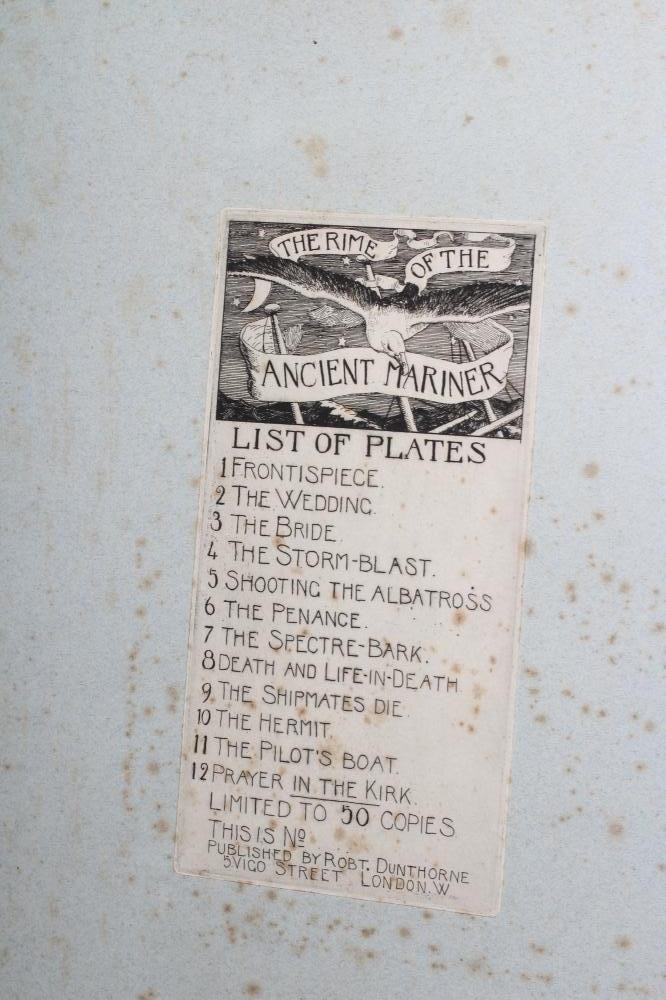 THE RIME
OF THE
ANCIENT MARINER
LIST OF PLATES
1 FRONTISPIECE.
2 THE WEDDING.
3 THE BRIDE.
4 THE STORM-BLAST.
5 SHOOTING THE ALBATROSS
6 THE PENANCE.
7 THE SPECTRE-BARK.
8 DEATH AND LIFE-IN-DEATH
9. THE SHIPMATES DIE.
10 THE HERMIT.
11 THE PILOT'S BOAT.
12 PRAYER IN THE KIRK.
LIMITED TO 50 COPIES
THIS IS Nº
PUBLISHED BY ROBT. DUNTHORNE
5 VIGO STREET LONDON. W